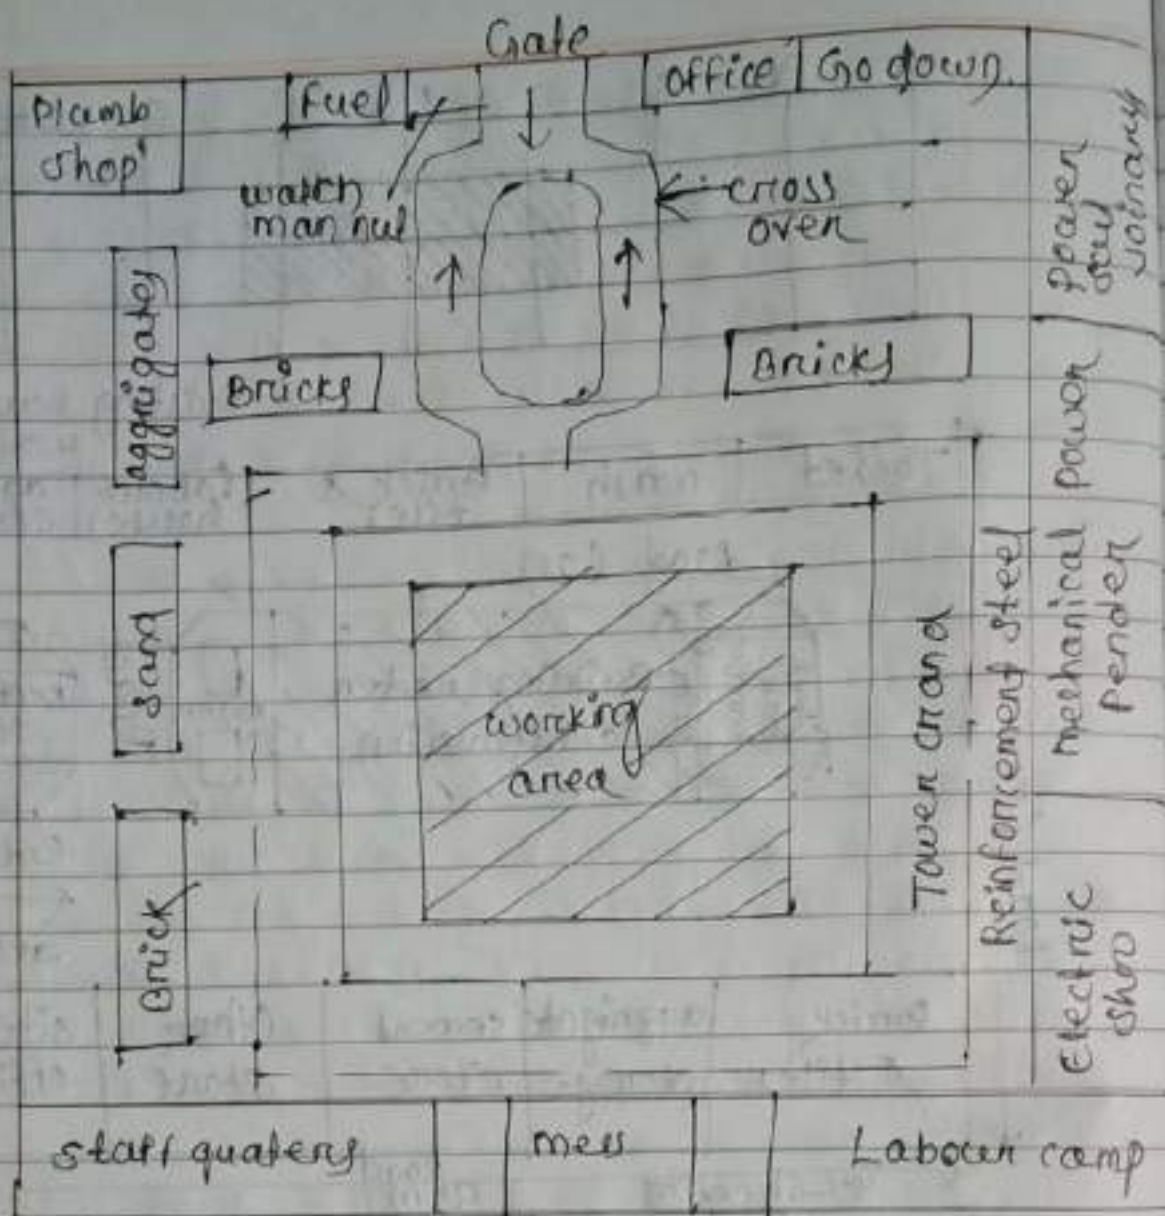 Gate
Plumb
Shop
Fuel
office
Go down.
watch
man hut
cross
over
Power
and
Joinary
aggrigates
Bricks
Bricks
power
Sand
working
area
Tower crand
Reinforcement steel
mechanical
pender
Brick
Electric
shoo
staff quaters
mess
Labour camp